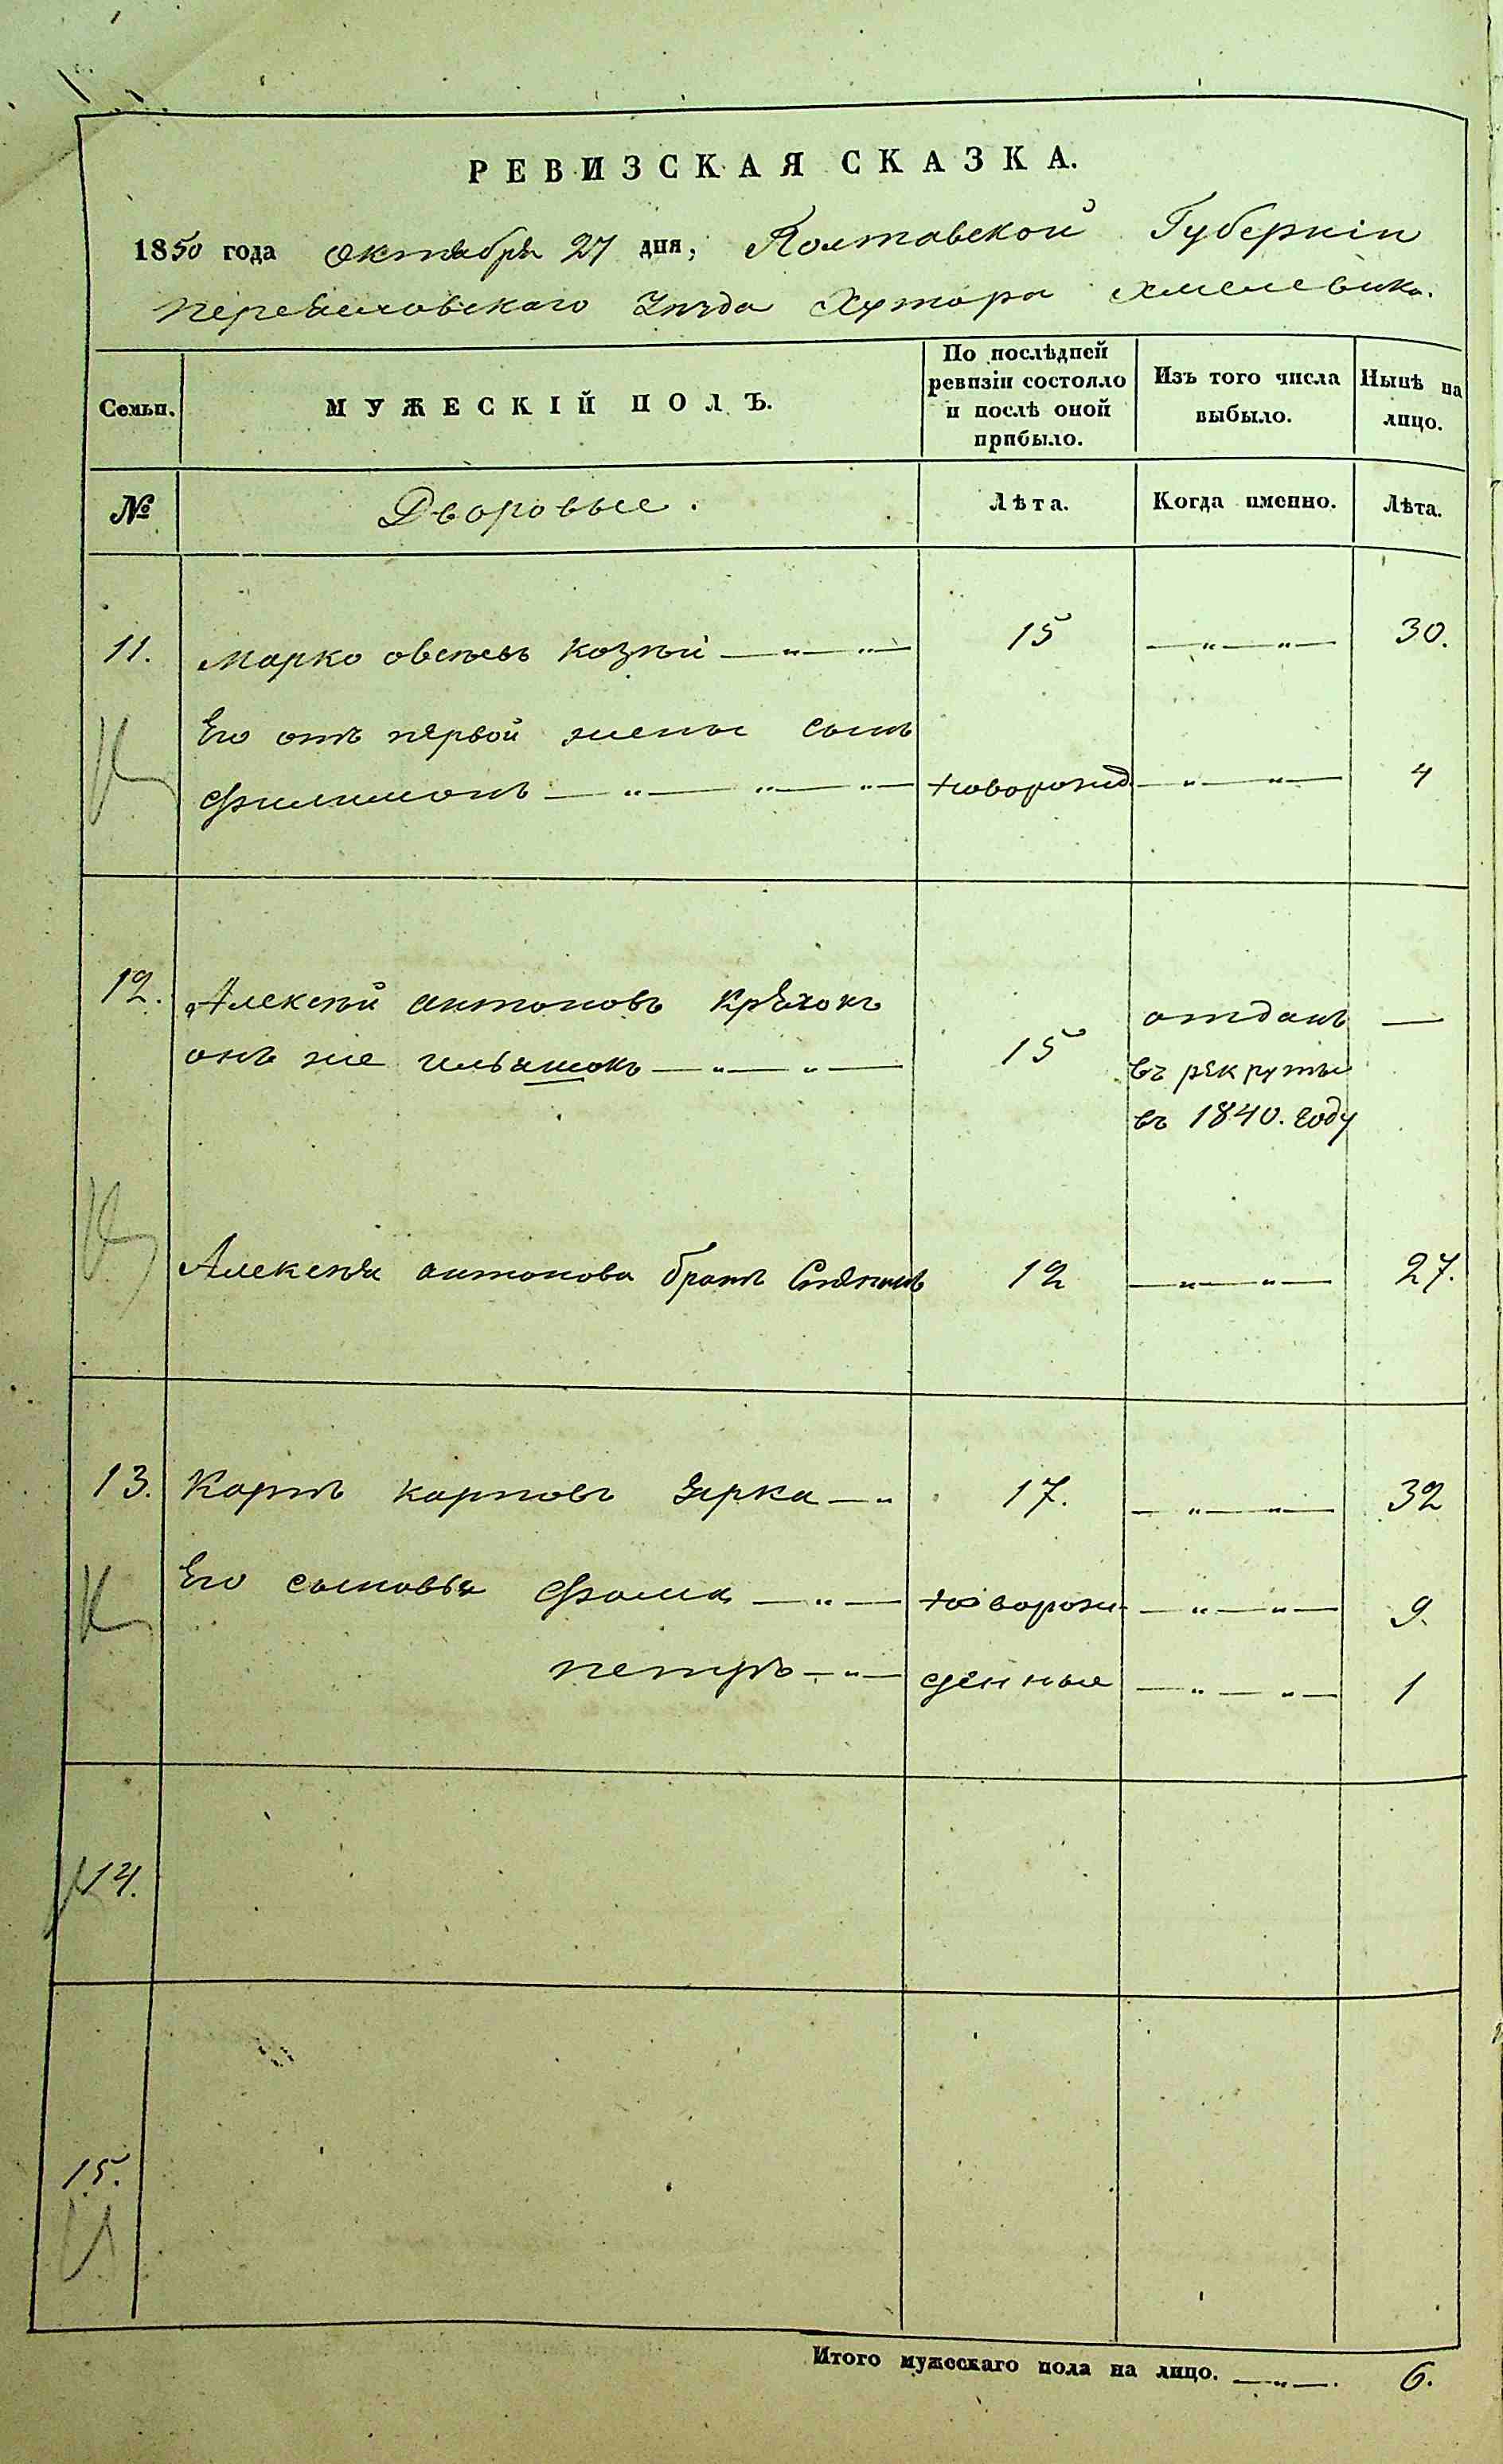 РЕВИЗСКАЯ СКАЗКА.
1850 года октября 27 дня, Полтавской Губернiи
Хутора
Семьи.
МУЖЕСКIЙ ПОЛЪ.
По послѣдней ревизiи состояло и послѣ оной прибыло.
Изъ того числа выбыло.
Нынѣ на лицо.
№
Дворовые.
Лѣта.
Когда именно.
Лѣта.
11. Марко 15 30.
Его отъ первой жены сынъ
Филимонъ новорожд 4
12. Алексѣй антоновъ
онъ же 15 отданъ —
въ рекруты
въ 1840. году
Алексѣя антонова братъ Степанъ 12 27.
13. Карпъ карповъ 17. 32
Его сыновья Фома новорож 9.
петръ денные 1
14.
15.
Итого мужескаго пола на лицо. 6.